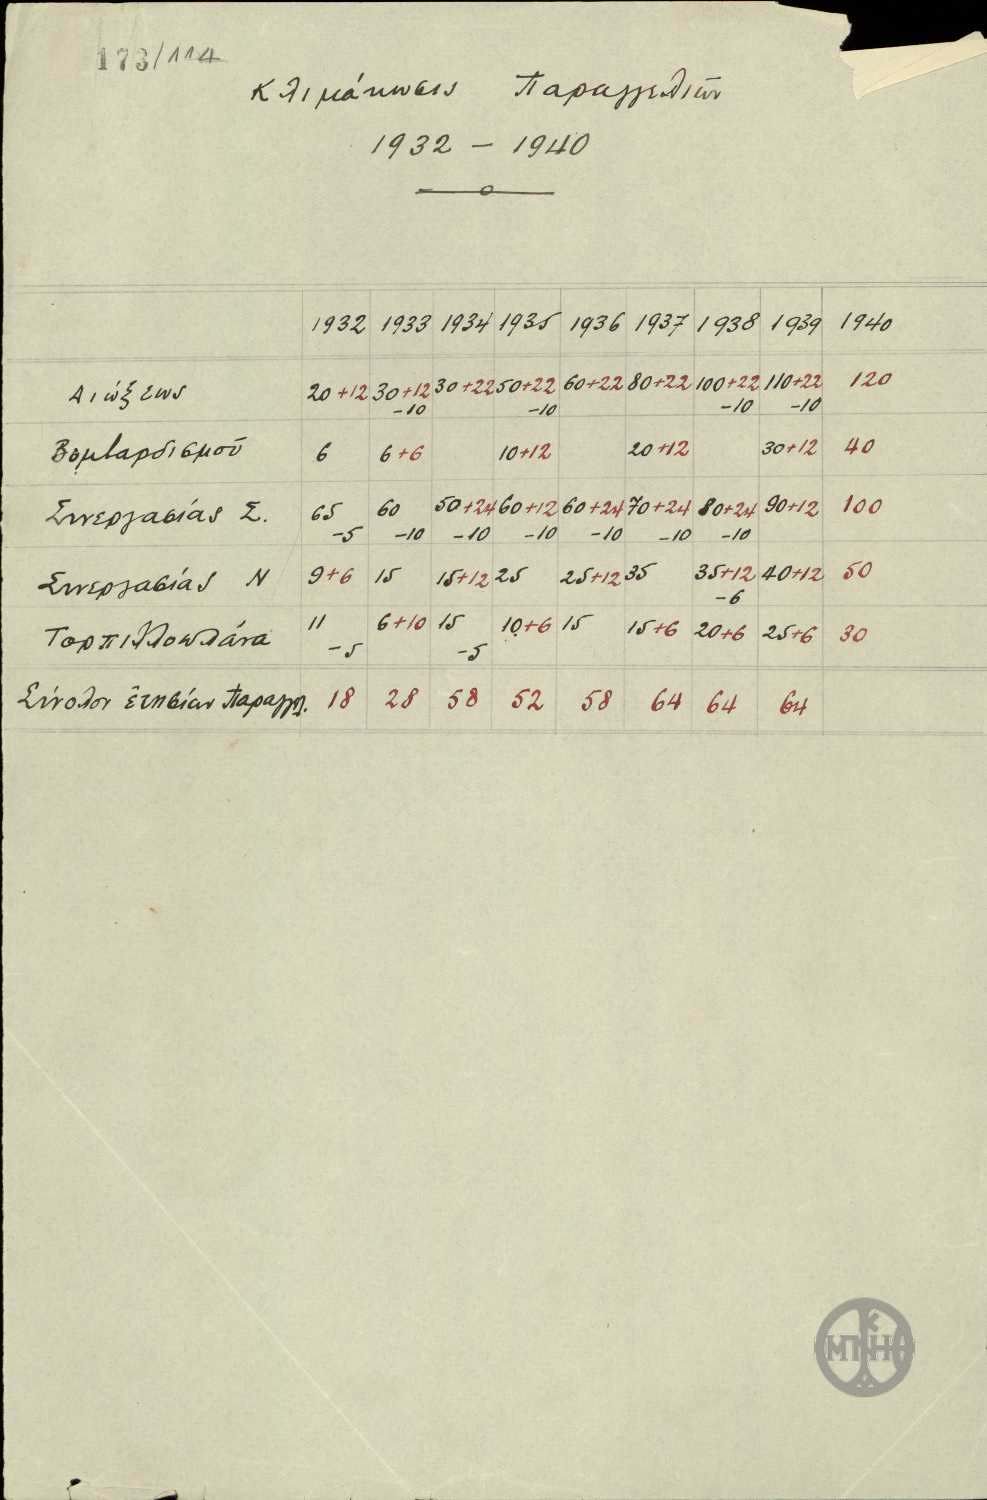 173/114
Κλιμάκωσις Παραγγελιῶν
1932 – 1940
1932 1933 1934 1935 1936 1937 1938 1939 1940
Διώξεως 20+12 30+12 30+22 50+22 60+22 80+22 100+22 110+22 120
-10 -10 -10 -10
Βομβαρδισμοῦ 6 6+6 10+12 20+12 30+12 40
Συνεργασίας Σ. 65 60 50+24 60+12 60+24 70+24 80+24 90+12 100
-5 -10 -10 -10 -10 -10 -10
Συνεργασίας Ν 9+6 15 15+12 25 25+12 35 35+12 40+12 50
-6
Τορπιλλοπλάνα 11 6+10 15 10+6 15 15+6 20+6 25+6 30
-5 -5
Σύνολον ἐτησίων Παραγγ. 18 28 58 52 58 64 64 64
ΜΠΚΗ